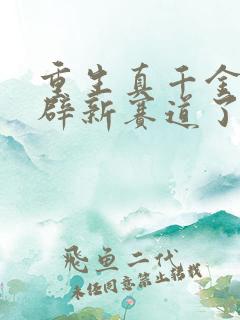 重生真千金
辟新赛道了
飛鱼二代
未经同意禁止转载